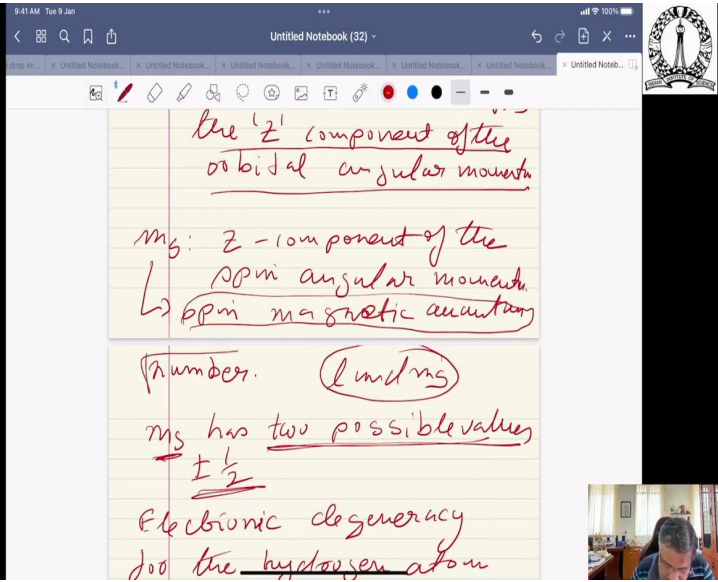 9:41 AM Tue 9 Jan
100%
Untitled Notebook (32)
drop en...
× Untitled Notebook...
× Untitled Notebook...
× Untitled Notebook...
× Untitled Notebook...
× Untitled Notebook...
× Untitled Notebook...
× Untitled Noteb...
the 'Z' component of the
orbital angular momentu
ms: Z - component of the
spin angular momentu
spin magnetic quantum
number. l and ms
ms has two possible values
± 1/2
Electronic degeneracy
for the hydrogen atom